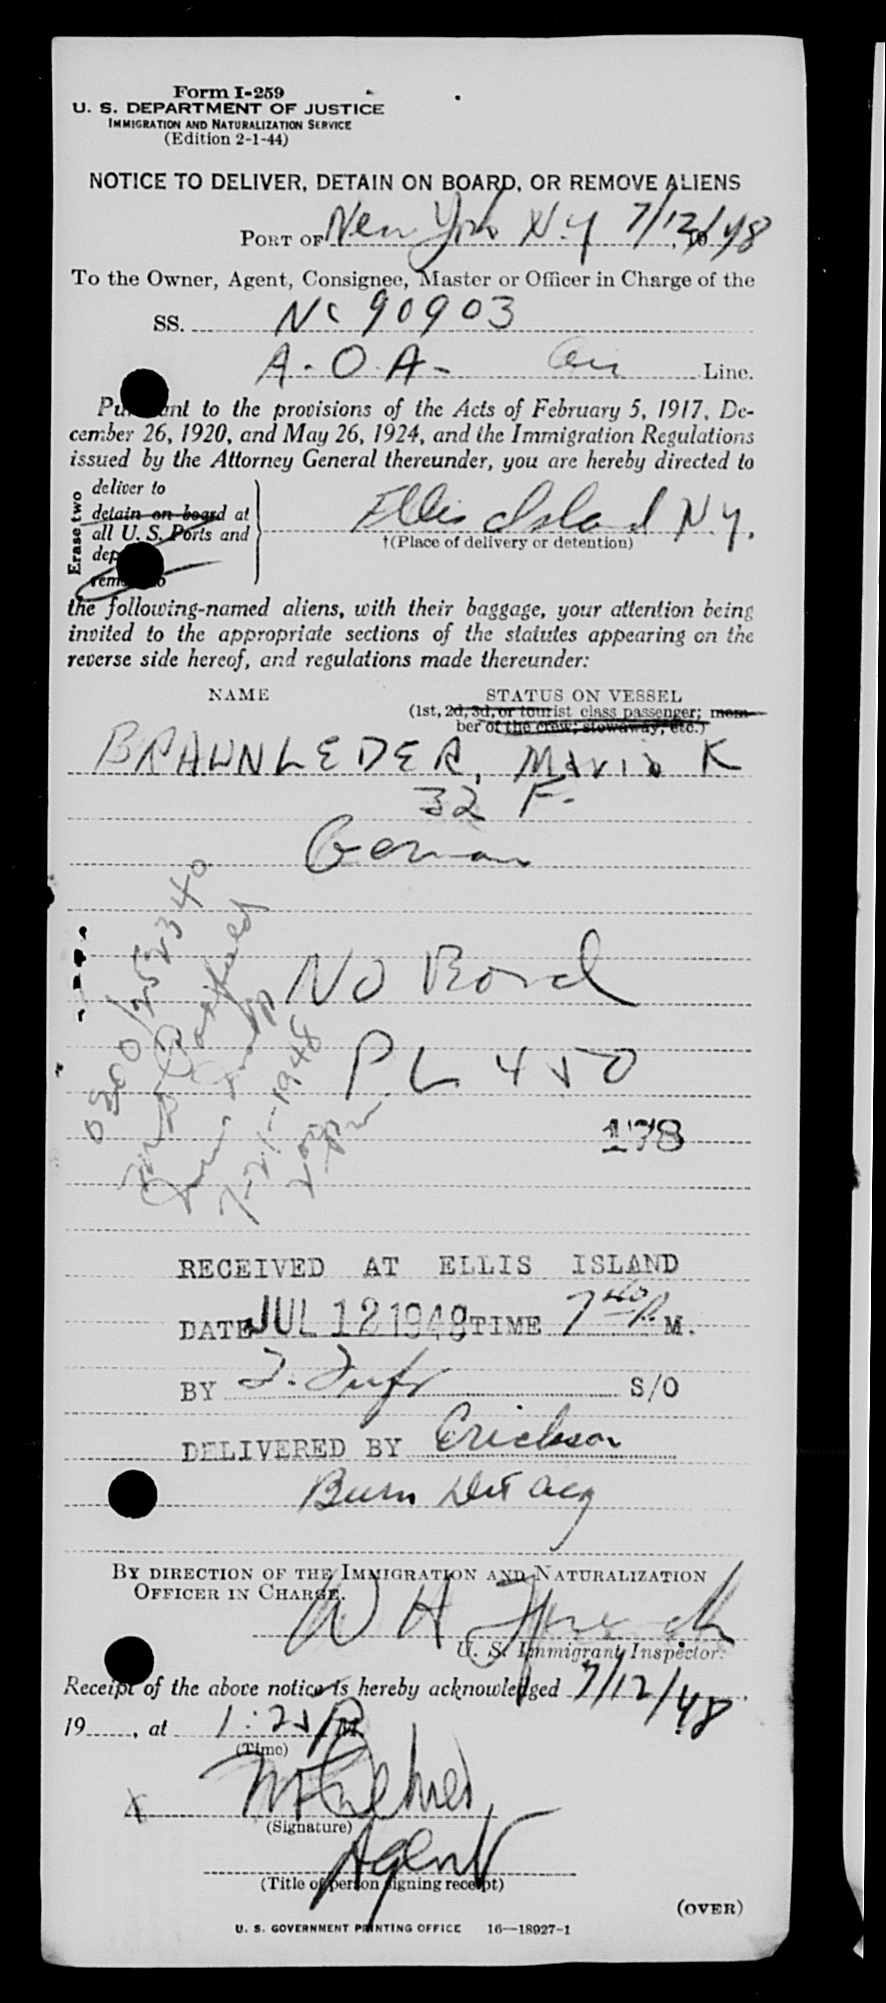 Form I-259
U. S. DEPARTMENT OF JUSTICE
IMMIGRATION AND NATURALIZATION SERVICE
(Edition 2-1-44)
NOTICE TO DELIVER, DETAIN ON BOARD, OR REMOVE ALIENS
PORT OF New York N.Y 7/12/48
To the Owner, Agent, Consignee, Master or Officer in Charge of the
SS. Nc 90903
A.O.A- Air Line.
Pursuant to the provisions of the Acts of February 5, 1917, De-
cember 26, 1920, and May 26, 1924, and the Immigration Regulations
issued by the Attorney General thereunder, you are hereby directed to
Erase two
deliver to
detain on board at
all U. S. Ports and
remove to
Ellis Island N.Y.
†(Place of delivery or detention)
the following-named aliens, with their baggage, your attention being
invited to the appropriate sections of the statutes appearing on the
reverse side hereof, and regulations made thereunder:
NAME STATUS ON VESSEL
(1st, 2d, 3d, or tourist class passenger; mem-
ber of the crew; stowaway, etc.)
BRAUNLEDER, Maria K
32 F.
German
No Bond
PL 450
178
0300/252340
7-21-1948
RECEIVED AT ELLIS ISLAND
DATE JUL 12 1948 TIME 7 40 P. M.
BY S/O
DELIVERED BY Erickson
By DIRECTION OF THE IMMIGRATION AND NATURALIZATION
OFFICER IN CHARGE.
W H
U. S. Immigrant Inspector.
Receipt of the above notice is hereby acknowledged 7/12/48
19......, at 1:25 P M
(Time)
X
(Signature)
Agent
(Title of person signing receipt)
(OVER)
U. S. GOVERNMENT PRINTING OFFICE 16—18927-1